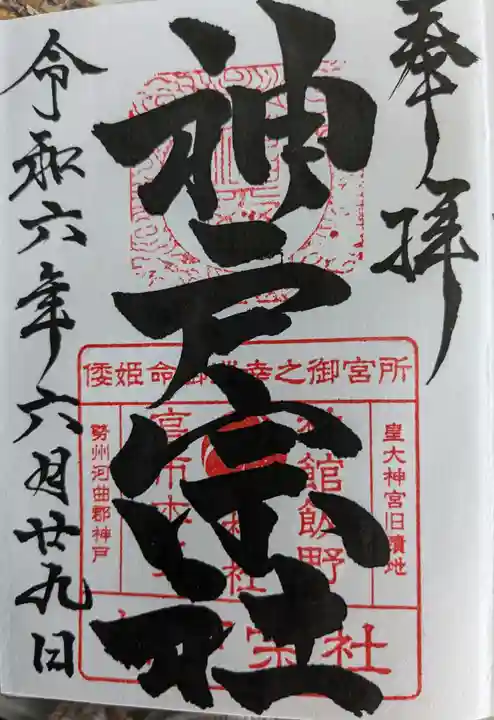 奉拝
神戸宗社
倭姫命御巡幸之御宮所
皇大神宮旧蹟地
神館飯野
社
勢州河曲郡神戸
宗社
令和六年六月廿九日